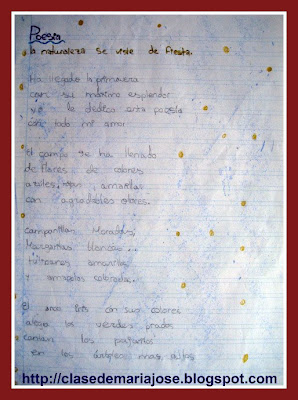 Poesía
la naturaleza se viste de fiesta.
Ha llegado la primavera
con su máximo esplendor
yo le dedico esta poesía
con todo mi amor.
El campo se ha llenado
de flores de colores
azules, rojas, amarillas
con agradables olores.
campanillas Moradas,
Margaritas blancas...
amarillos
y amapolas coloradas.
El arco Iris con sus colores
alegra los verdes prados
cantan los pajarillos
en los más altos
http://clasedemariajose.blogspot.com/